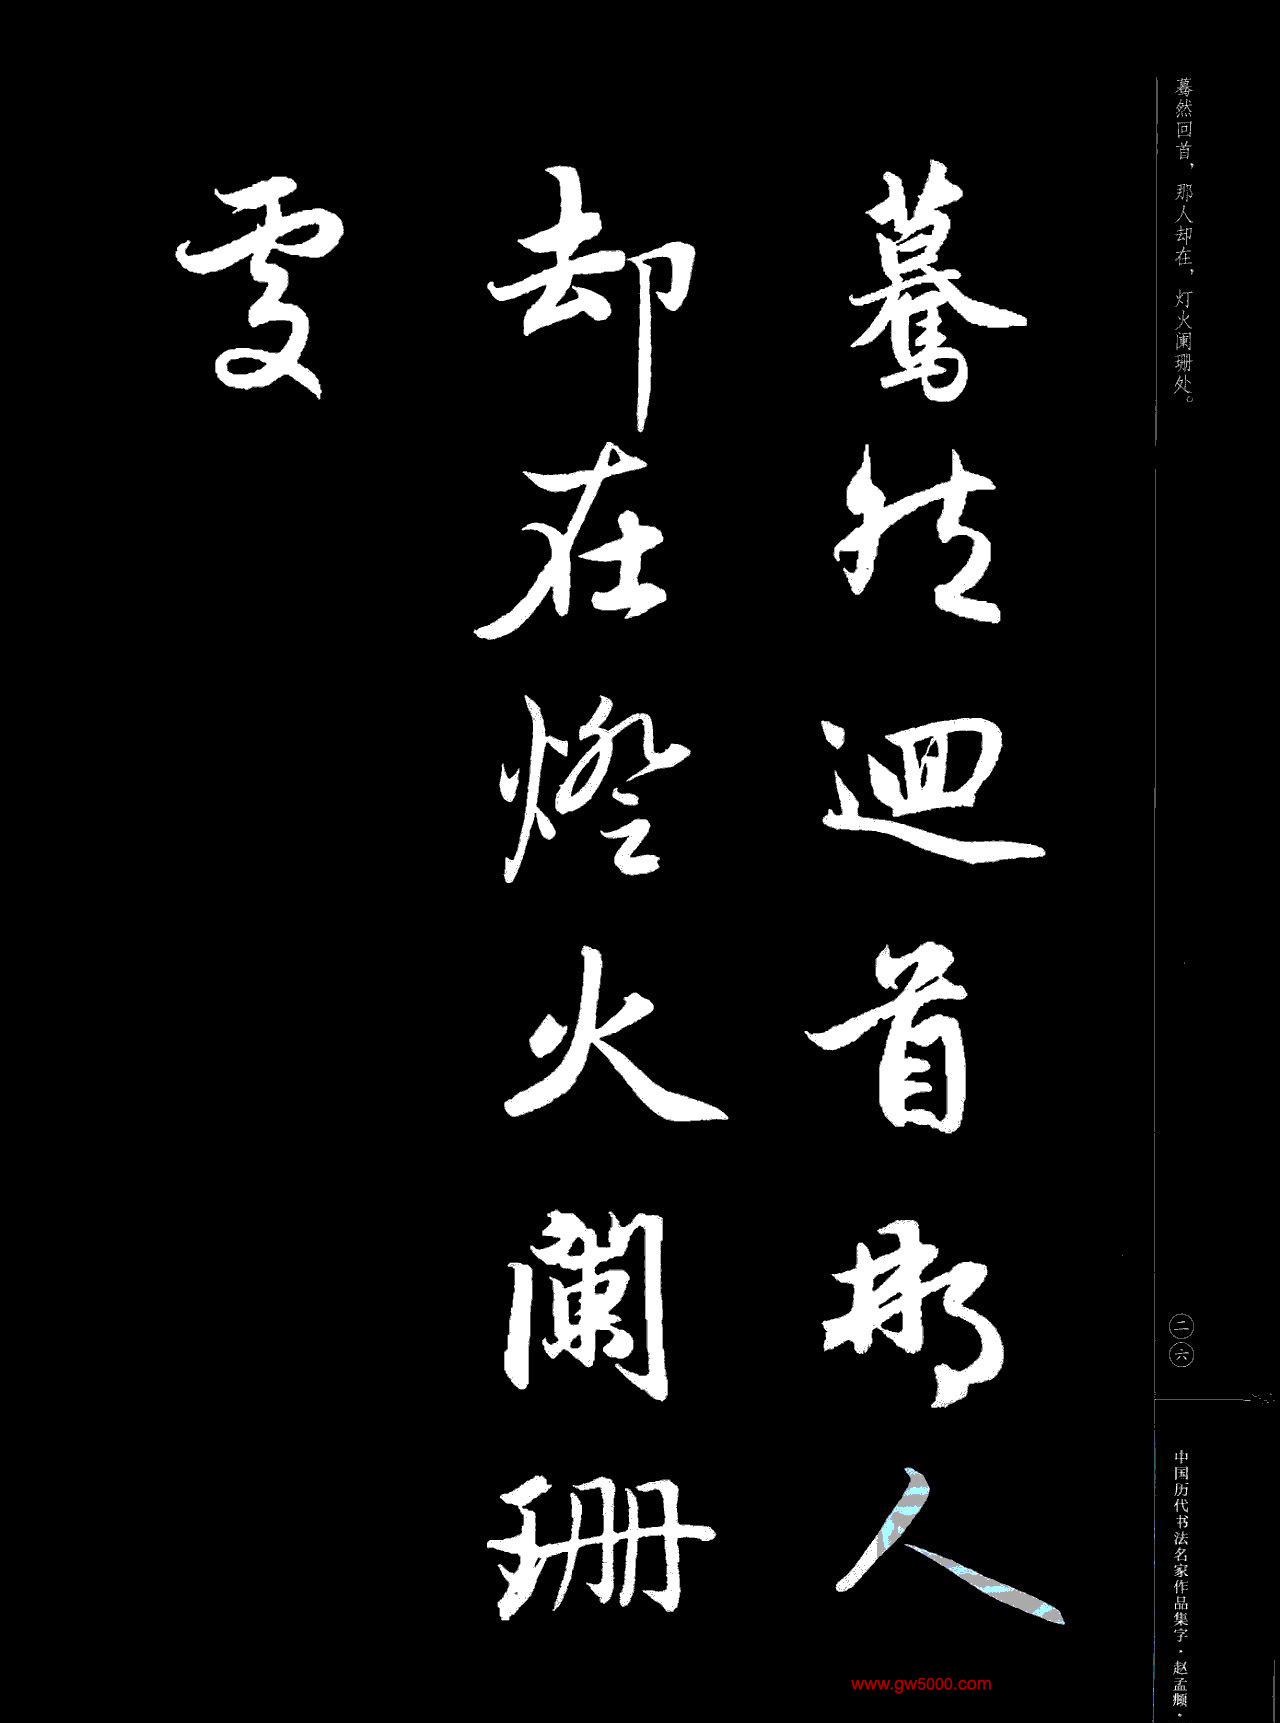 蓦然回首，那人却在，灯火阑珊处。
驀然迴首那人
却在燈火闌珊
處
二六
中国历代书法名家作品集字·赵孟頫·
www.gw5000.com